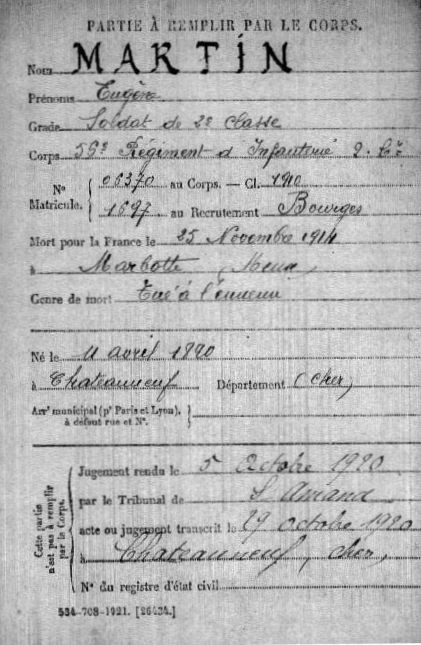 PARTIE À REMPLIR PAR LE CORPS.
Nom MARTIN
Prénoms Eugène
Grade Soldat de 2e Classe
Corps 56e Régiment d'Infanterie 2. Cie
N° Matricule. { 06370 au Corps. — Cl. 1910
1697 au Recrutement Bourges
Mort pour la France le 25 Novembre 1914
à Marbotte (Meuse)
Genre de mort Tué à l'ennemi
Né le 11 avril 1890
à Chateauneuf Département (Cher)
Arrt municipal (pr Paris et Lyon),
à défaut rue et N°.
Cette partie n'est pas à remplir par le Corps.
Jugement rendu le 5 Octobre 1920
par le Tribunal de St Amand
acte ou jugement transcrit le 29 octobre 1920
à Chateauneuf, Cher,
N° du registre d'état civil
534-708-1921. [26434.]